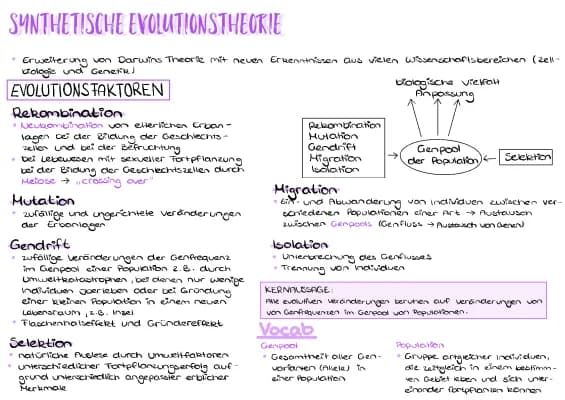 SYNTHETISCHE EVOLUTIONSTHEORIE
* Erweiterung von Darwins Theorie mit neuen Erkenntnissen aus vielen Wissenschaftsbereichen (Zell-
biologie und Genetik)
EVOLUTIONSFAKTOREN
Rekombination
* Neukombination von elterlichen Erban-
lagen bei der Bildung der Geschlechts-
zellen und bei der Befruchtung
* bei Lebewesen mit sexueller Fortpflanzung
bei der Bildung der Geschlechtszellen durch
Meiose → „crossing over"
Mutation
* zufällige und ungerichtete Veränderungen
der Erbanlagen
Gendrift
* zufällige Veränderungen der Genfrequenz
im Genpool einer Population z.B. durch
Umweltkatastrophen, bei denen nur wenige
Individuen überleben oder bei Gründung
einer kleinen Population in einem neuen
Lebensraum, z.B. Insel
* Flaschenhalseffekt und Gründereffekt
Selektion
* natürliche Auslese durch Umweltfaktoren
* unterschiedlicher Fortpflanzungserfolg auf-
grund unterschiedlich angepasster erblicher
Merkmale
biologische Vielfalt
Anpassung
Rekombination
Mutation
Gendrift
Migration
Isolation
Genpool
der Population
Selektion
Migration
* Ein- und Abwanderung von Individuen zwischen ver-
schiedenen Populationen einer Art → Austausch
zwischen Genpools (Genfluss → Austausch von Genen)
Isolation
* Unterbrechung des Genflusses
* Trennung von Individuen
KERNAUSSAGE:
Alle evolutiven Veränderungen beruhen auf Veränderungen von
von Genfrequenzen im Genpool von Populationen.
Vocab
Genpool
* Gesamtheit aller Gen-
varianten (Allele) in
einer Population
Population
* Gruppe artgleicher Individuen,
die zeitgleich in einem bestimm-
ten Gebiet leben und sich unter-
einander fortpflanzen können